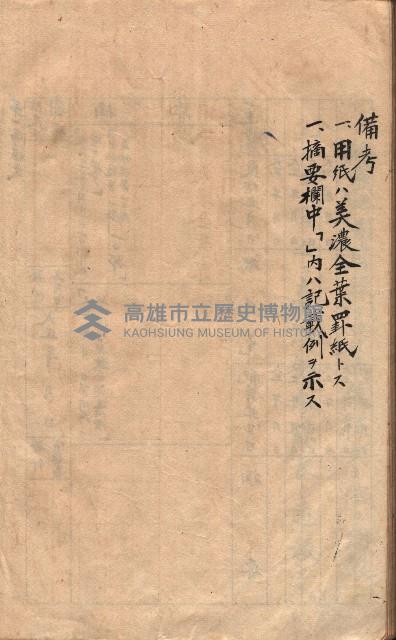 備考
一、用紙ハ美濃全葉罫紙トス
一、摘要欄中「」内ハ記載例ヲ示ス
高雄市立歷史博物館
KAOHSIUNG MUSEUM OF HISTORY